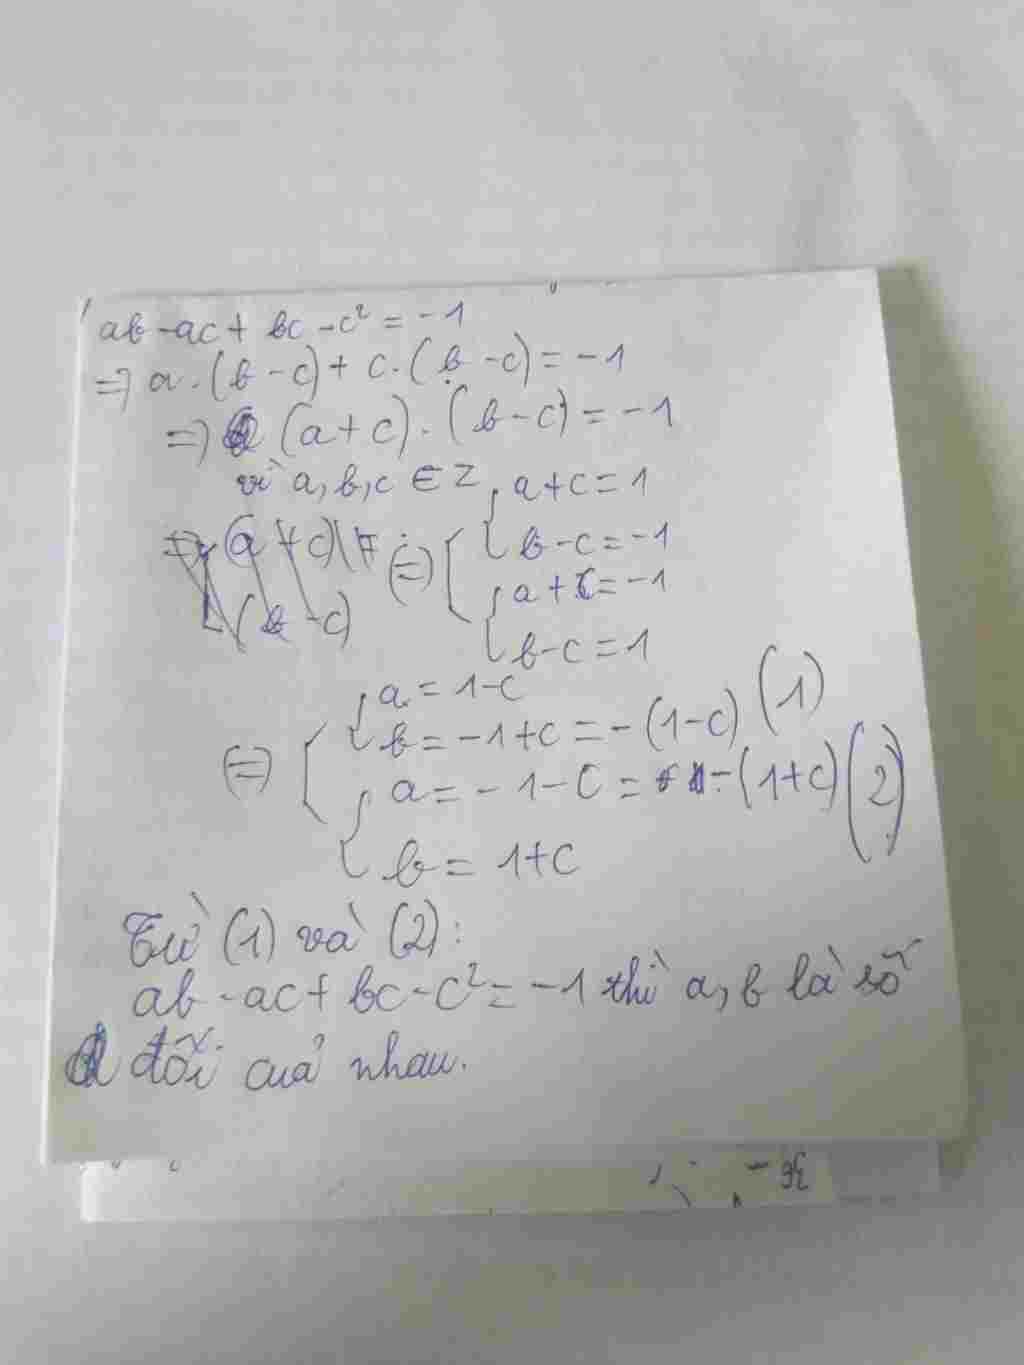 ab - ac + bc - c² = -1
=> a . (b - c) + c . (b - c) = -1
=> (a + c) . (b - c) = -1
vì a, b, c ∈ Z
a + c = 1
=> (a + c)
(=)
b - c = -1
a + c = -1
(b - c)
b - c = 1
a = 1 - c
b = -1 + c = - (1 - c) (1)
(=)
a = - 1 - c = - (1 + c) (2)
b = 1 + c
Từ (1) và (2) :
ab - ac + bc - c² = -1 thì a, b là số
đối của nhau.